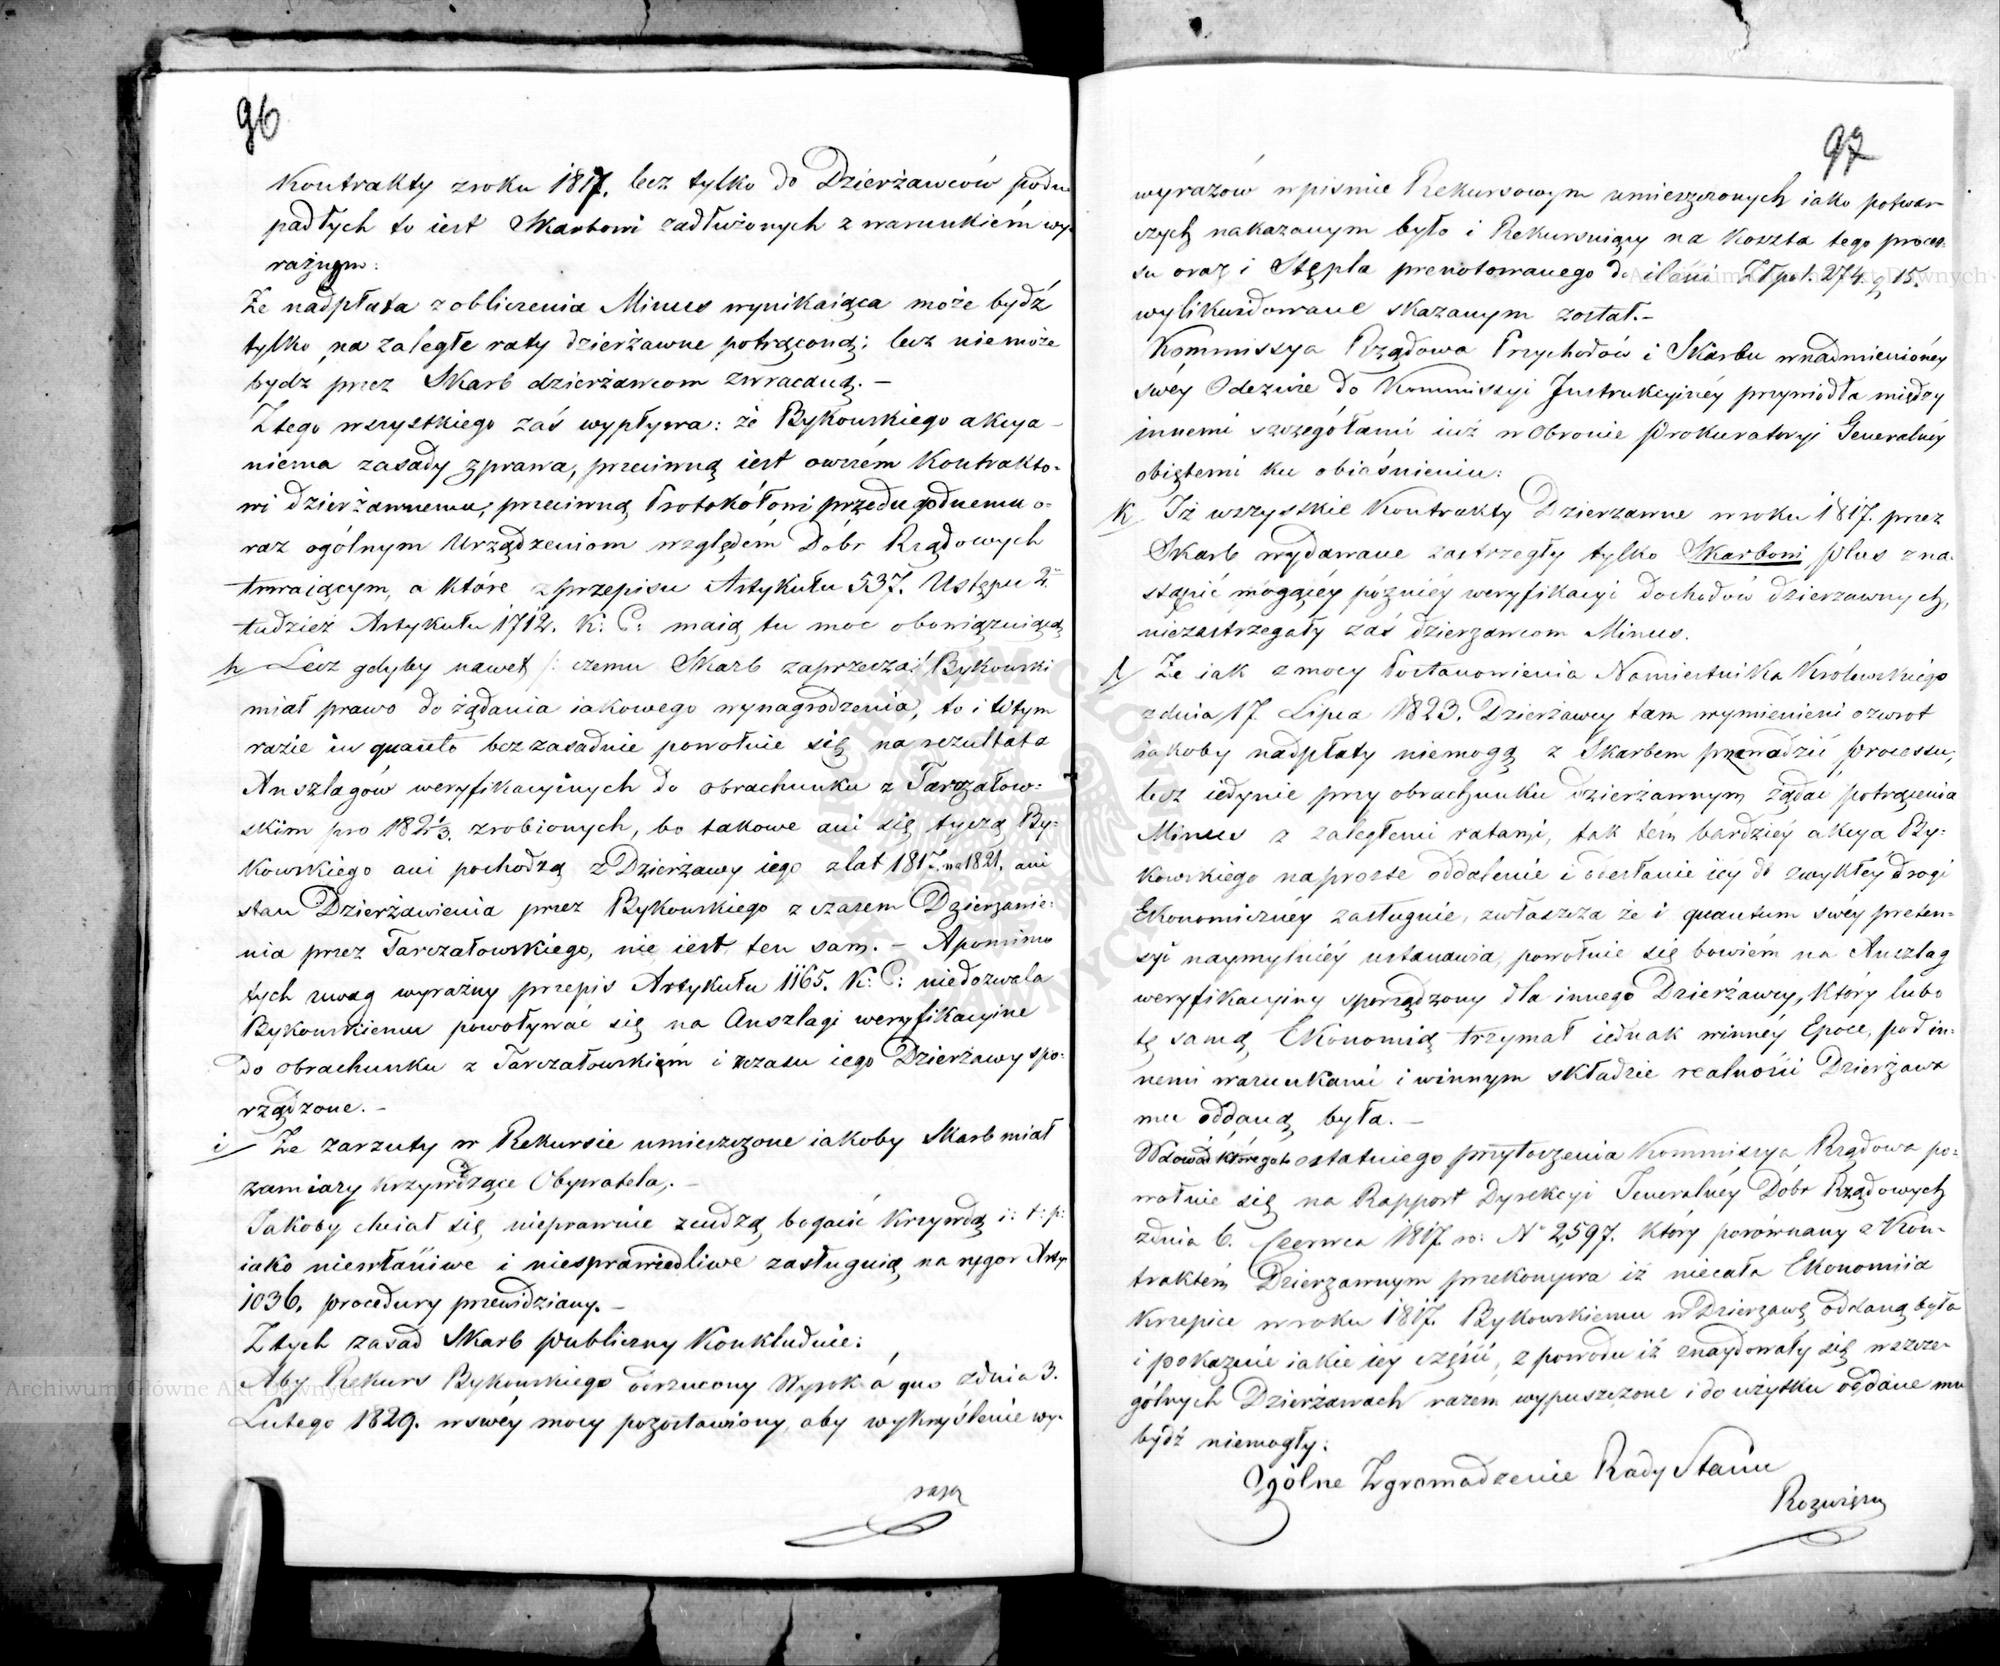 96
Kontrakty z roku 1817. lecz tylko do Dzierżawców podu
padłych to iest Skarbowi zadłużonych z warunkiem wy-
raźnym:
Że nadpłata z obliczenia Minus wynikaiąca może bydź
tylko na zaległe raty dzierżawne potrąconą; lecz nie może
bydź przez Skarb dzierżawcom zwracaną. –
Z tego wszystkiego zaś wypływa: że Bykowskiego akcya
niema zasady z prawa, przeciwną iest owszem Kontrakto-
wi dzierżawnemu, przeciwną Protokółowi przedugodnemu o-
raz ogólnym Urządzeniom względem Dóbr Rządowych
trwaiącym, a które z przepisu Artykułu 537. Ustępu 2.
tudzież Artykułu 1712. K: C: maią tu moc obowiązuiącą
h Lecz gdyby nawet /: czemu Skarb zaprzecza:/ Bykowski
miał prawo do żądania iakowego wynagrodzenia, to i w tym
razie in quanto bezzasadnie powołuie się na rezultata
Anszlagów weryfikacyinych do obrachunku z Tarczałow-
skim pro 182 1/3. zrobionych, bo takowe ani się tyczą By-
kowskiego ani pochodzą z Dzierżawy iego z lat 1817. na 1821. ani
stan Dzierżawienia przez Bykowskiego z czasem Dzierżawie-
nia przez Tarczałowskiego, nie iest ten sam. – A pomimo
tych uwag wyraźny przepis Artykułu 1165. K: C: niedozwala
Bykowskiemu powoływać się na Anszlagi weryfikacyine
do obrachunku z Tarczałowskiem i z czasu iego Dzierżawy spo-
rządzone. –
i Że zarzuty w Rekursie umieszczone iakoby Skarb miał
zamiary krzywdzące Obywatela, –
Jakoby chciał się nieprawnie z cudzą bogacić krzywdą i: t: p:
iako niewłaściwe i niesprawiedliwe zasługuią na rygor Arty
1036. procedury przewidziany. –
Z tych zasad Skarb publiczny Konkluduie:
Aby Rekurs Bykowskiego odrzucony Wyrok à quo z dnia 3.
Lutego 1829. w swéy mocy pozostawiony, aby wykryślenie wy-
razy
97
wyrazów w piśmie Rekursowym umieszczonych iako potwar-
czych nakazanym było i Rekursuiący na koszta tego proces-
su oraz i Stępla prenotowanego do ilości Złpol. 274. g. 15.
wylikwidowane skazanym został. –
Kommissya Rządowa Przychodów i Skarbu w nadmienionéy
swéy Odezwie do Kommissyi Instrukcyinéy przywiodła między
innemi szczegółami iuż w Obronie Prokuratoryi Generalnéy
obiętemi ku obiaśnieniu:
k Iż wszystkie Kontrakty Dzierżawne w roku 1817. przez
Skarb wydawane zastrzegły tylko Skarbowi plus z na-
stąpić mogącéy późniéy weryfikacyi dochodów dzierżawnych,
niezastrzegały zaś dzierżawcom Minus.
l Że iak z mocy Postanowienia Namiestnika Królewskiego
z dnia 17 Lipca 1823. Dzierżawcy tam wymienieni o zwrot
iakoby nadpłaty niemogą z Skarbem prowadzić processu,
lecz iedynie przy obrachunku dzierżawnym żądać potrącenia
Minus z zaległemi ratami, tak tém bardziéy akcya By-
kowskiego na proste oddalenie i odesłanie iéy do zwykłéy drogi
Ekonomicznéy zasługuie, zwłaszcza że i quantum swéy preten-
syi naymylniéy ustanawia, powołuie się bowiem na Anszlag
weryfikacyiny sporządzony dla innego Dzierżawcy, który lubo
tę samą Ekonomią trzymał iednak w innéy Epoce, pod in-
nemi warunkami i w innym składzie realności Dzierżawa
mu oddaną była. –
W dowód którego to ostatniego przytoczenia Kommissya Rządowa po-
wołuie się na Rapport Dyrekcyi Jeneralnéy Dóbr Rządowych
z dnia 6. Czerwca 1817. ro: No 2,597. który porównany z Kon-
traktem Dzierżawnym przekonywa iż niecała Ekonomiia
Krzepice w roku 1817. Bykowskiemu w Dzierżawę oddaną była
i pokazuie iakie iéy części, z powodu iż znaydowały się w szcze-
gólnych Dzierżawach razem wypuszczone i do użytku oddane mu
bydź niemogły:
Ogólne Zgromadzenie Rady Stanu
Rozważa
Archiwum Główne Akt Dawnych